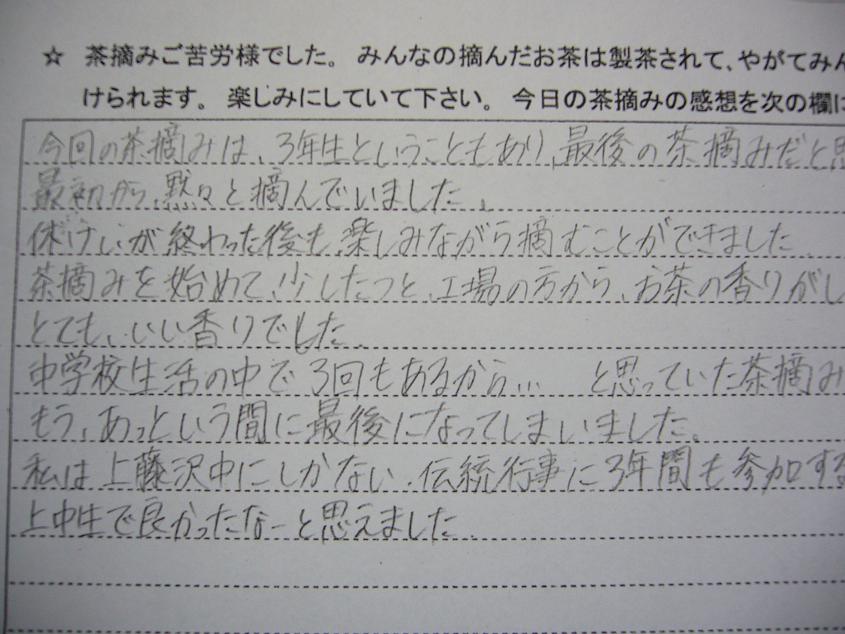 ☆ 茶摘みご苦労様でした。 みんなの摘んだお茶は製茶されて、やがてみん
けられます。 楽しみにしていて下さい。 今日の茶摘みの感想を次の欄に
今回の茶摘みは、3年生ということもあり、最後の茶摘みだと思
最初から、黙々と摘んでいました。
休けいが終わった後も楽しみながら摘むことができました。
茶摘みを始めて、少したつと、工場の方から、お茶の香りがし
とても、いい香りでした。
中学校生活の中で3回もあるから… と思っていた茶摘み
もう、あっという間に最後になってしまいました。
私は上藤沢中にしかない、伝統行事に3年間も参加する
上中生で良かったなーと思えました。